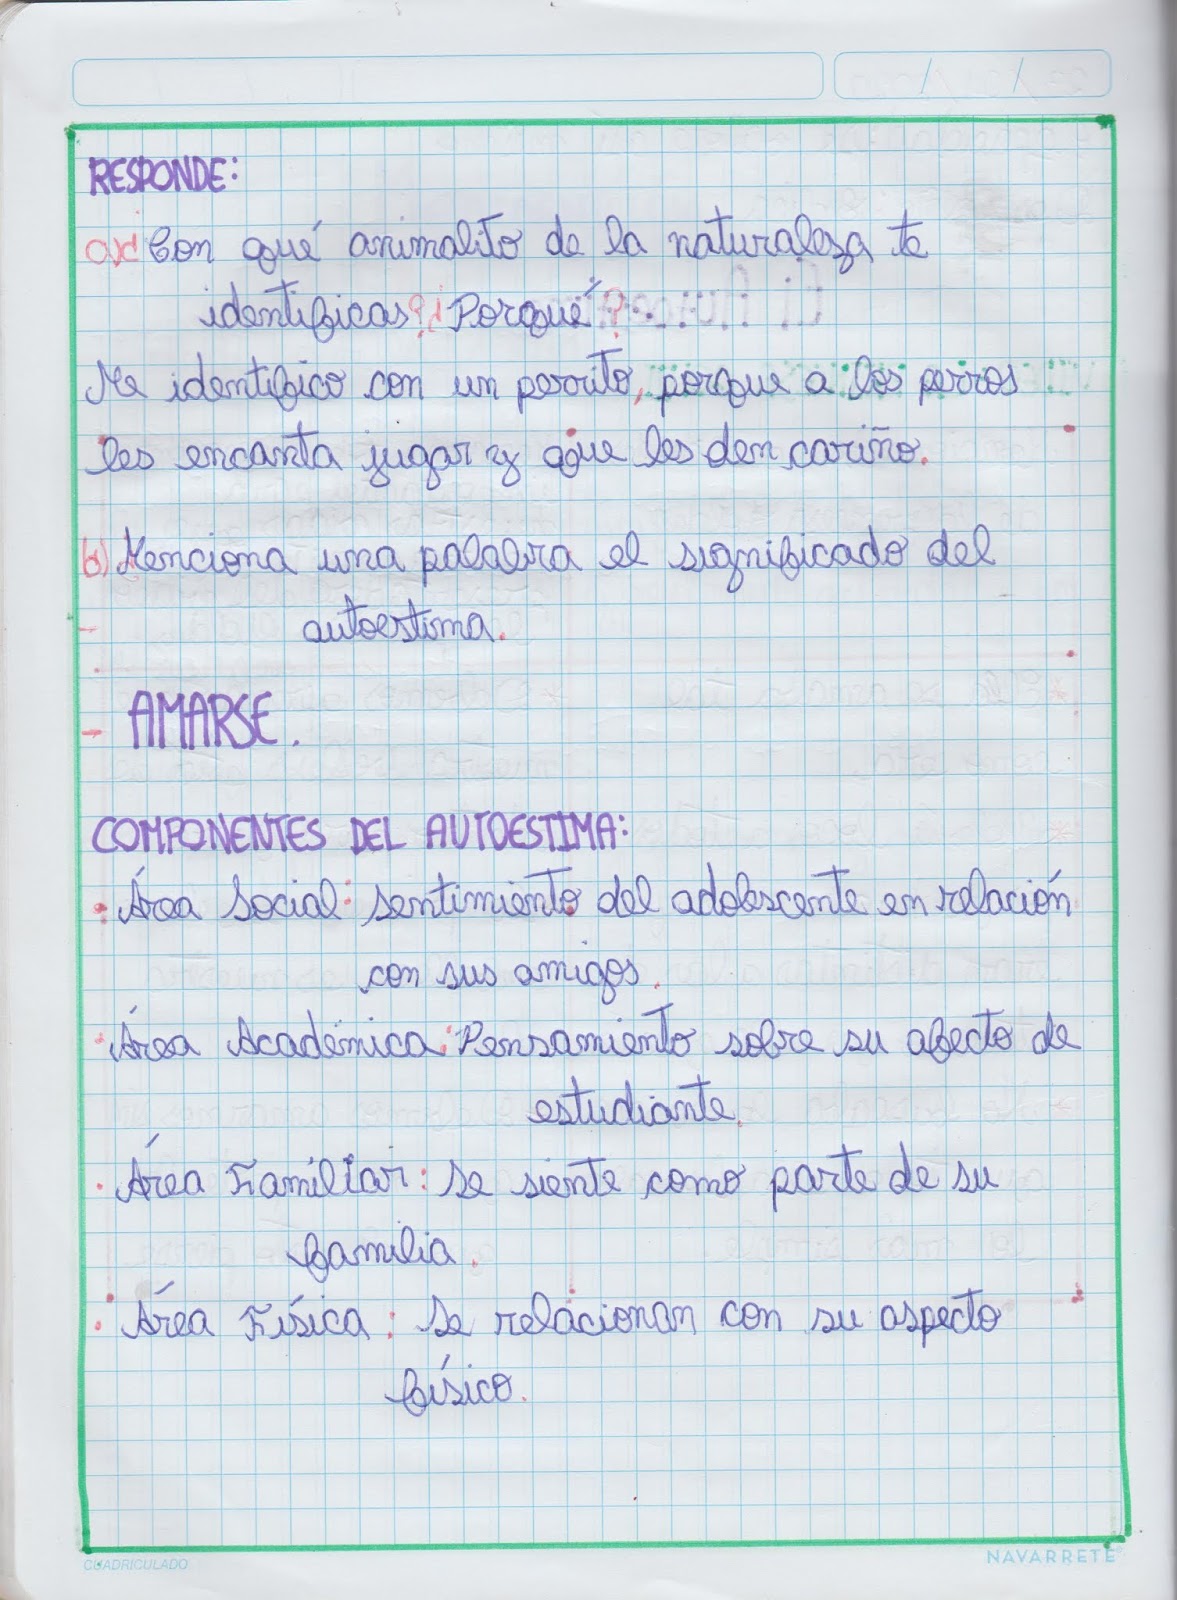 RESPONDE:
a)¿Con qué animalito de la naturaleza te
identificas?¿Porqué?
Me identifico con un perrito, porque a los perros
les encanta jugar y que les den cariño.
b) Menciona una palabra el significado del
autoestima.
- AMARSE.
COMPONENTES DEL AUTOESTIMA:
• Área Social: sentimiento del adolescente en relación
con sus amigos.
• Área Académica: Pensamiento sobre su afecto de
estudiante.
• Área Familiar: Se siente como parte de su
familia.
• Área Física: Se relacionan con su aspecto
físico.
CUADRICULADO
NAVARRETE